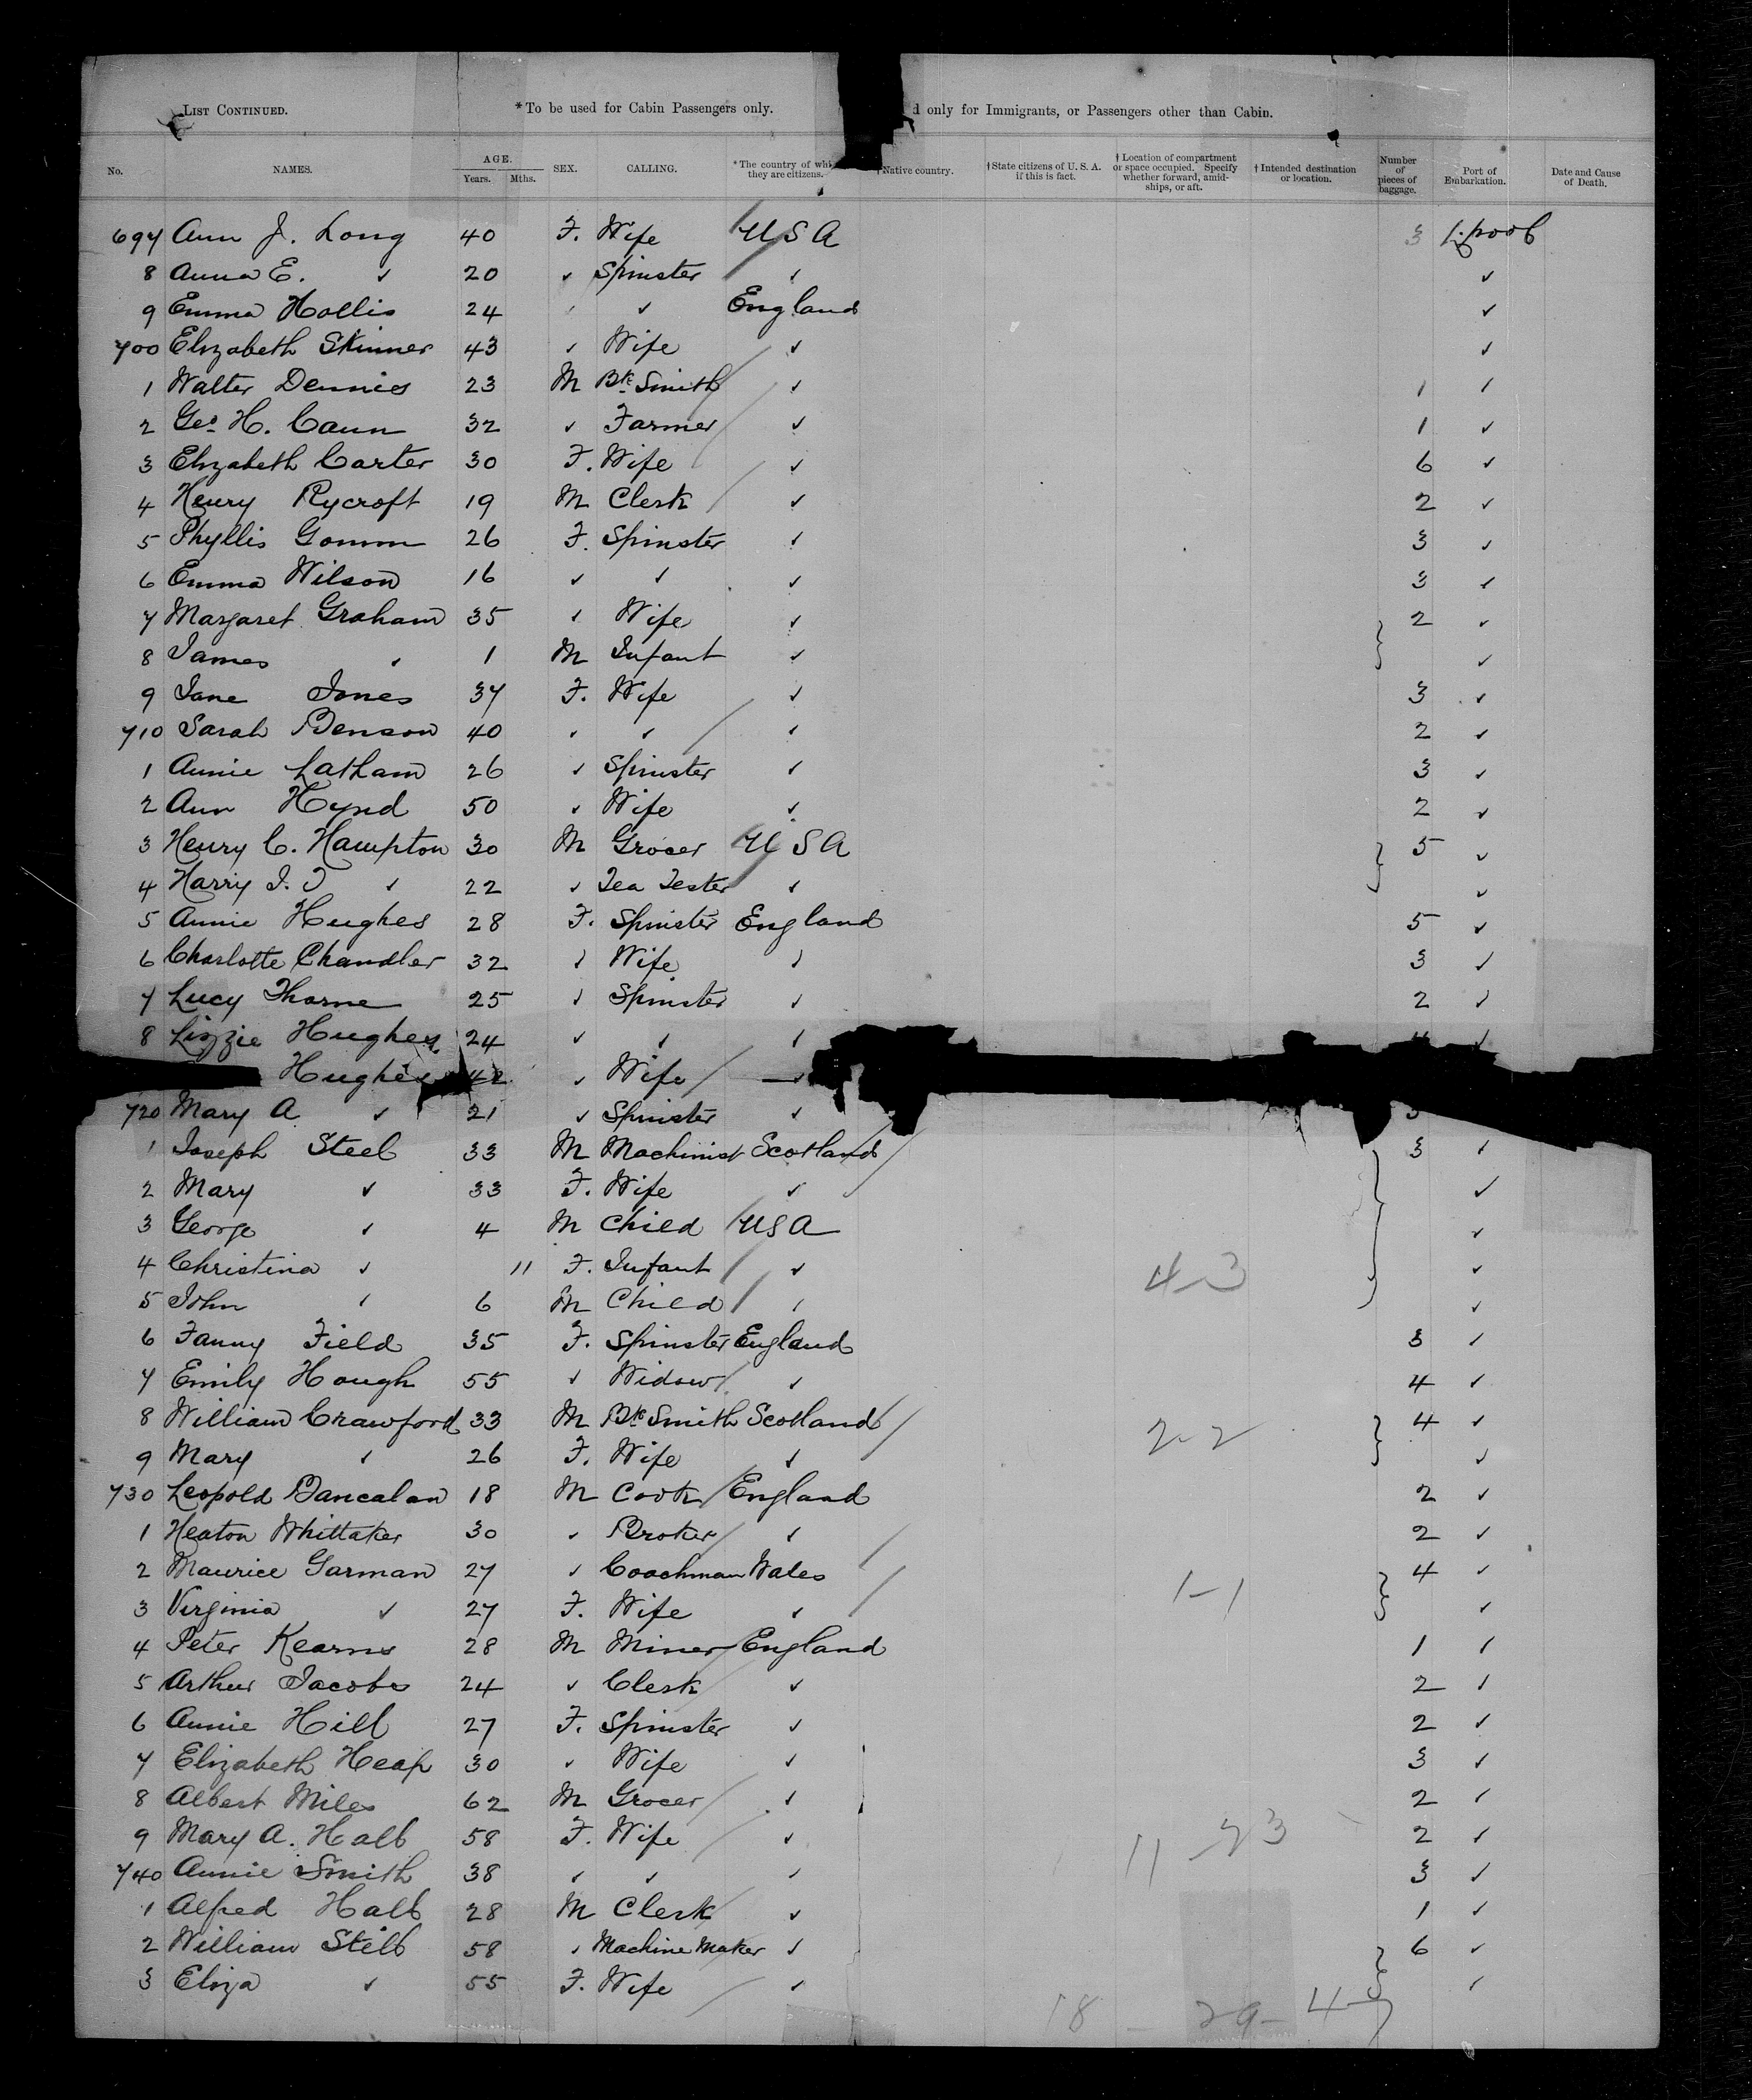 LIST CONTINUED. *To be used for Cabin Passengers only. d only for Immigrants, or Passengers other than Cabin.
No. NAMES. AGE. Years. Mths. SEX. CALLING. *The country of whi they are citizens. †Native country. †State citizens of U. S. A. if this is fact. †Location of compartment or space occupied. Specify whether forward, amidships, or aft. †Intended destination or location. Number of pieces of baggage. Port of Embarkation. Date and Cause of Death.
697 Ann J. Long 40 F. Wife USA 3 L'pool
8 Anna E. ✓ 20 ✓ Spinster ✓ ✓
9 Emma Hollis 24 ✓ ✓ England ✓
700 Elizabeth Skinner 43 ✓ Wife ✓ ✓
1 Walter Dennis 23 M Bk Smith ✓ 1 ✓
2 Geo H. Cann 32 ✓ Farmer ✓ 1 ✓
3 Elizabeth Carter 30 F. Wife ✓ 6 ✓
4 Henry Rycroft 19 M Clerk ✓ 2 ✓
5 Phyllis Gomm 26 F. Spinster ✓ 3 ✓
6 Emma Wilson 16 ✓ ✓ ✓ 3 ✓
7 Margaret Graham 35 ✓ Wife ✓ 2 ✓
8 James ✓ 1 M Infant ✓ ✓
9 Jane Jones 37 F. Wife ✓ 3 ✓
710 Sarah Benson 40 ✓ ✓ ✓ 2 ✓
1 Annie Latham 26 ✓ Spinster ✓ 3 ✓
2 Ann Hynd 50 ✓ Wife ✓ 2 ✓
3 Henry C. Hampton 30 M Grocer USA 5 ✓
4 Harry J. J ✓ 22 ✓ Tea Tester ✓ ✓
5 Annie Hughes 28 F. Spinster England 5 ✓
6 Charlotte Chandler 32 ✓ Wife ✓ 3 ✓
7 Lucy Thorne 25 ✓ Spinster ✓ 2 ✓
8 Lizzie Hughes 24 ✓ ✓ ✓ ✓
Hughes 42 ✓ Wife ✓
720 Mary A ✓ 21 ✓ Spinster ✓
1 Joseph Steel 33 M Machinist Scotland 3 ✓
2 Mary ✓ 33 F. Wife ✓ ✓
3 George ✓ 4 M Child USA ✓
4 Christina ✓ 11 F. Infant ✓ 4-3 ✓
5 John ✓ 6 M Child ✓ ✓
6 Fanny Field 35 F. Spinster England 3 ✓
7 Emily Hough 55 ✓ Widow ✓ 4 ✓
8 William Crawford 33 M Bk Smith Scotland 2-2 4 ✓
9 Mary ✓ 26 F. Wife ✓ ✓
730 Leopold Bancalan 18 M Cook England 2 ✓
1 Heaton Whittaker 30 ✓ Broker ✓ 2 ✓
2 Maurice Garman 27 ✓ Coachman Wales 4 ✓
3 Virginia ✓ 27 F. Wife ✓ 1-1 ✓
4 Peter Kearns 28 M Miner England 1 ✓
5 Arthur Jacobs 24 ✓ Clerk ✓ 2 ✓
6 Annie Hill 27 F. Spinster ✓ 2 ✓
7 Elizabeth Heap 30 ✓ Wife ✓ 3 ✓
8 Albert Miles 62 M Grocer ✓ 2 ✓
9 Mary A. Hall 58 F. Wife ✓ 11 - 23 2 ✓
740 Annie Smith 38 ✓ ✓ ✓ 3 ✓
1 Alfred Hall 28 M Clerk ✓ 1 ✓
2 William Still 58 ✓ Machine Maker ✓ 6 ✓
3 Eliza ✓ 55 F. Wife ✓ ✓
18 - 29 - 4